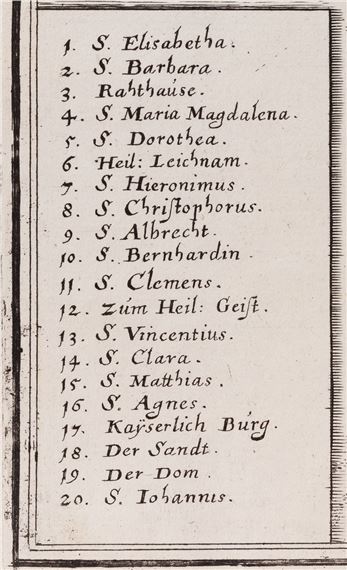 1. S. Elisabetha.
2. S. Barbara.
3. Rahthaúse.
4. S. Maria Magdalena.
5. S. Dorothea.
6. Heil: Leichnam.
7. S. Hieronimus.
8. S. Chriſtophorus.
9. S. Albrecht.
10. S. Bernhardin
11. S. Clemens.
12. Zúm Heil: Geiſt.
13. S. Vincentius.
14. S. Clara.
15. S. Matthias.
16. S. Agnes.
17. Kaÿserlich Búrg.
18. Der Sandt.
19. Der Dom
20. S. Iohannis.